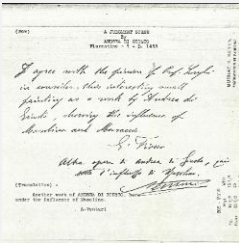 (BOW)
A JUDGMENT SCENE
By
ANDREA DI GIUSTO
Florentine - ? - D. 1455
I agree with the opinion of Prof. Longhi
in considering this interesting small
painting as a work by Andrea di
Giusto, showing the influence of
Masolino and Masaccio
G. Fiocco
Altra opera di Andrea di Giusto, più
sotto l'influsso di Masolino.
AVenturi
(Translation) -
Another work of ANDREA DI GIUSTO, more
under the influence of Masolino.
A.Venturi